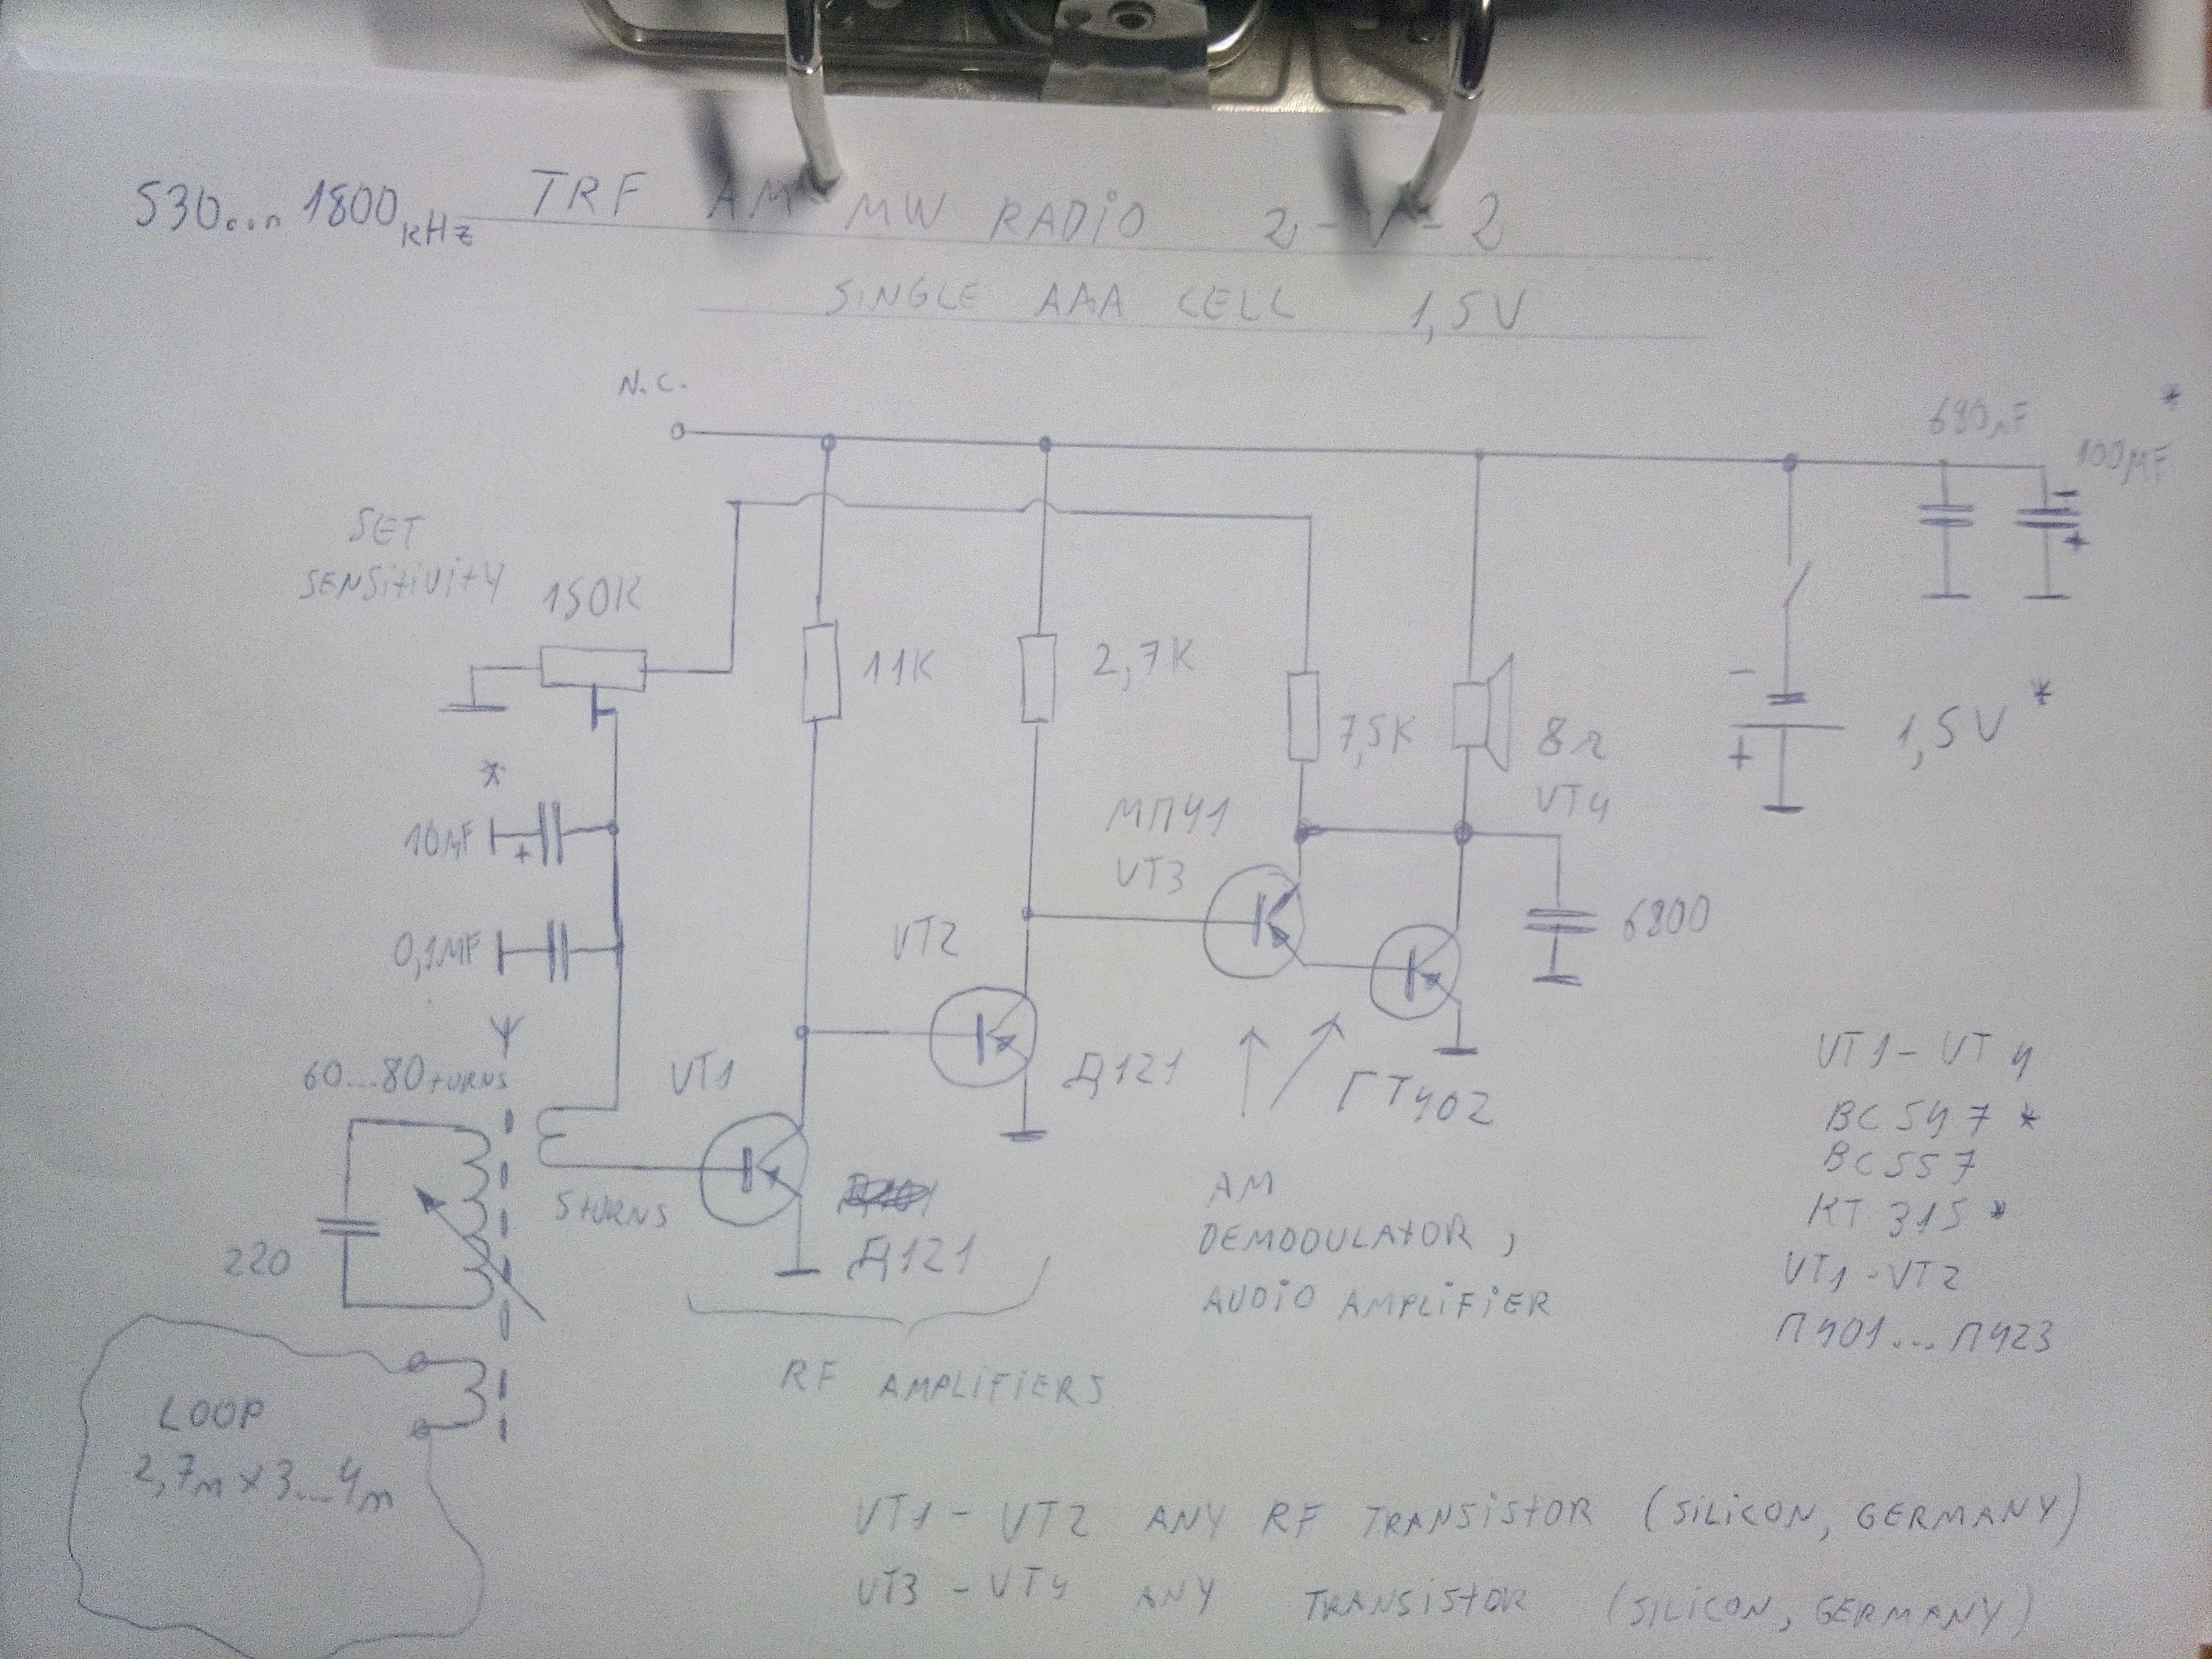 530... 1800 kHz TRF AM MW RADiO 2-V-2
SiNGLE AAA CELL 1,5V
N.C.
680nF
*
100MF
-
+
SET
SENSitiVitY
150K
11K
2,7K
7,5K
8Ω
VT4
-
+
1,5V *
*
10MF
+
0,1MF
МП41
VT3
6800
VT2
Д121
ГТ402
VT1
60...80 tURNS
5 tURNS
220
Д121
AM
DEMODULAtOR,
AUDiO AMPLiFiER
RF AMPLiFiERS
VT1 - VT4
BC547 *
BC557
КТ315 *
VT1 - VT2
П401...П423
LOOP
2,7m x 3...4m
VT1 - VT2 ANY RF TRANSiStOR (SiLiCON, GERMANY)
VT3 - VT4 ANY TRANSiStOR (SiLiCON, GERMANY)